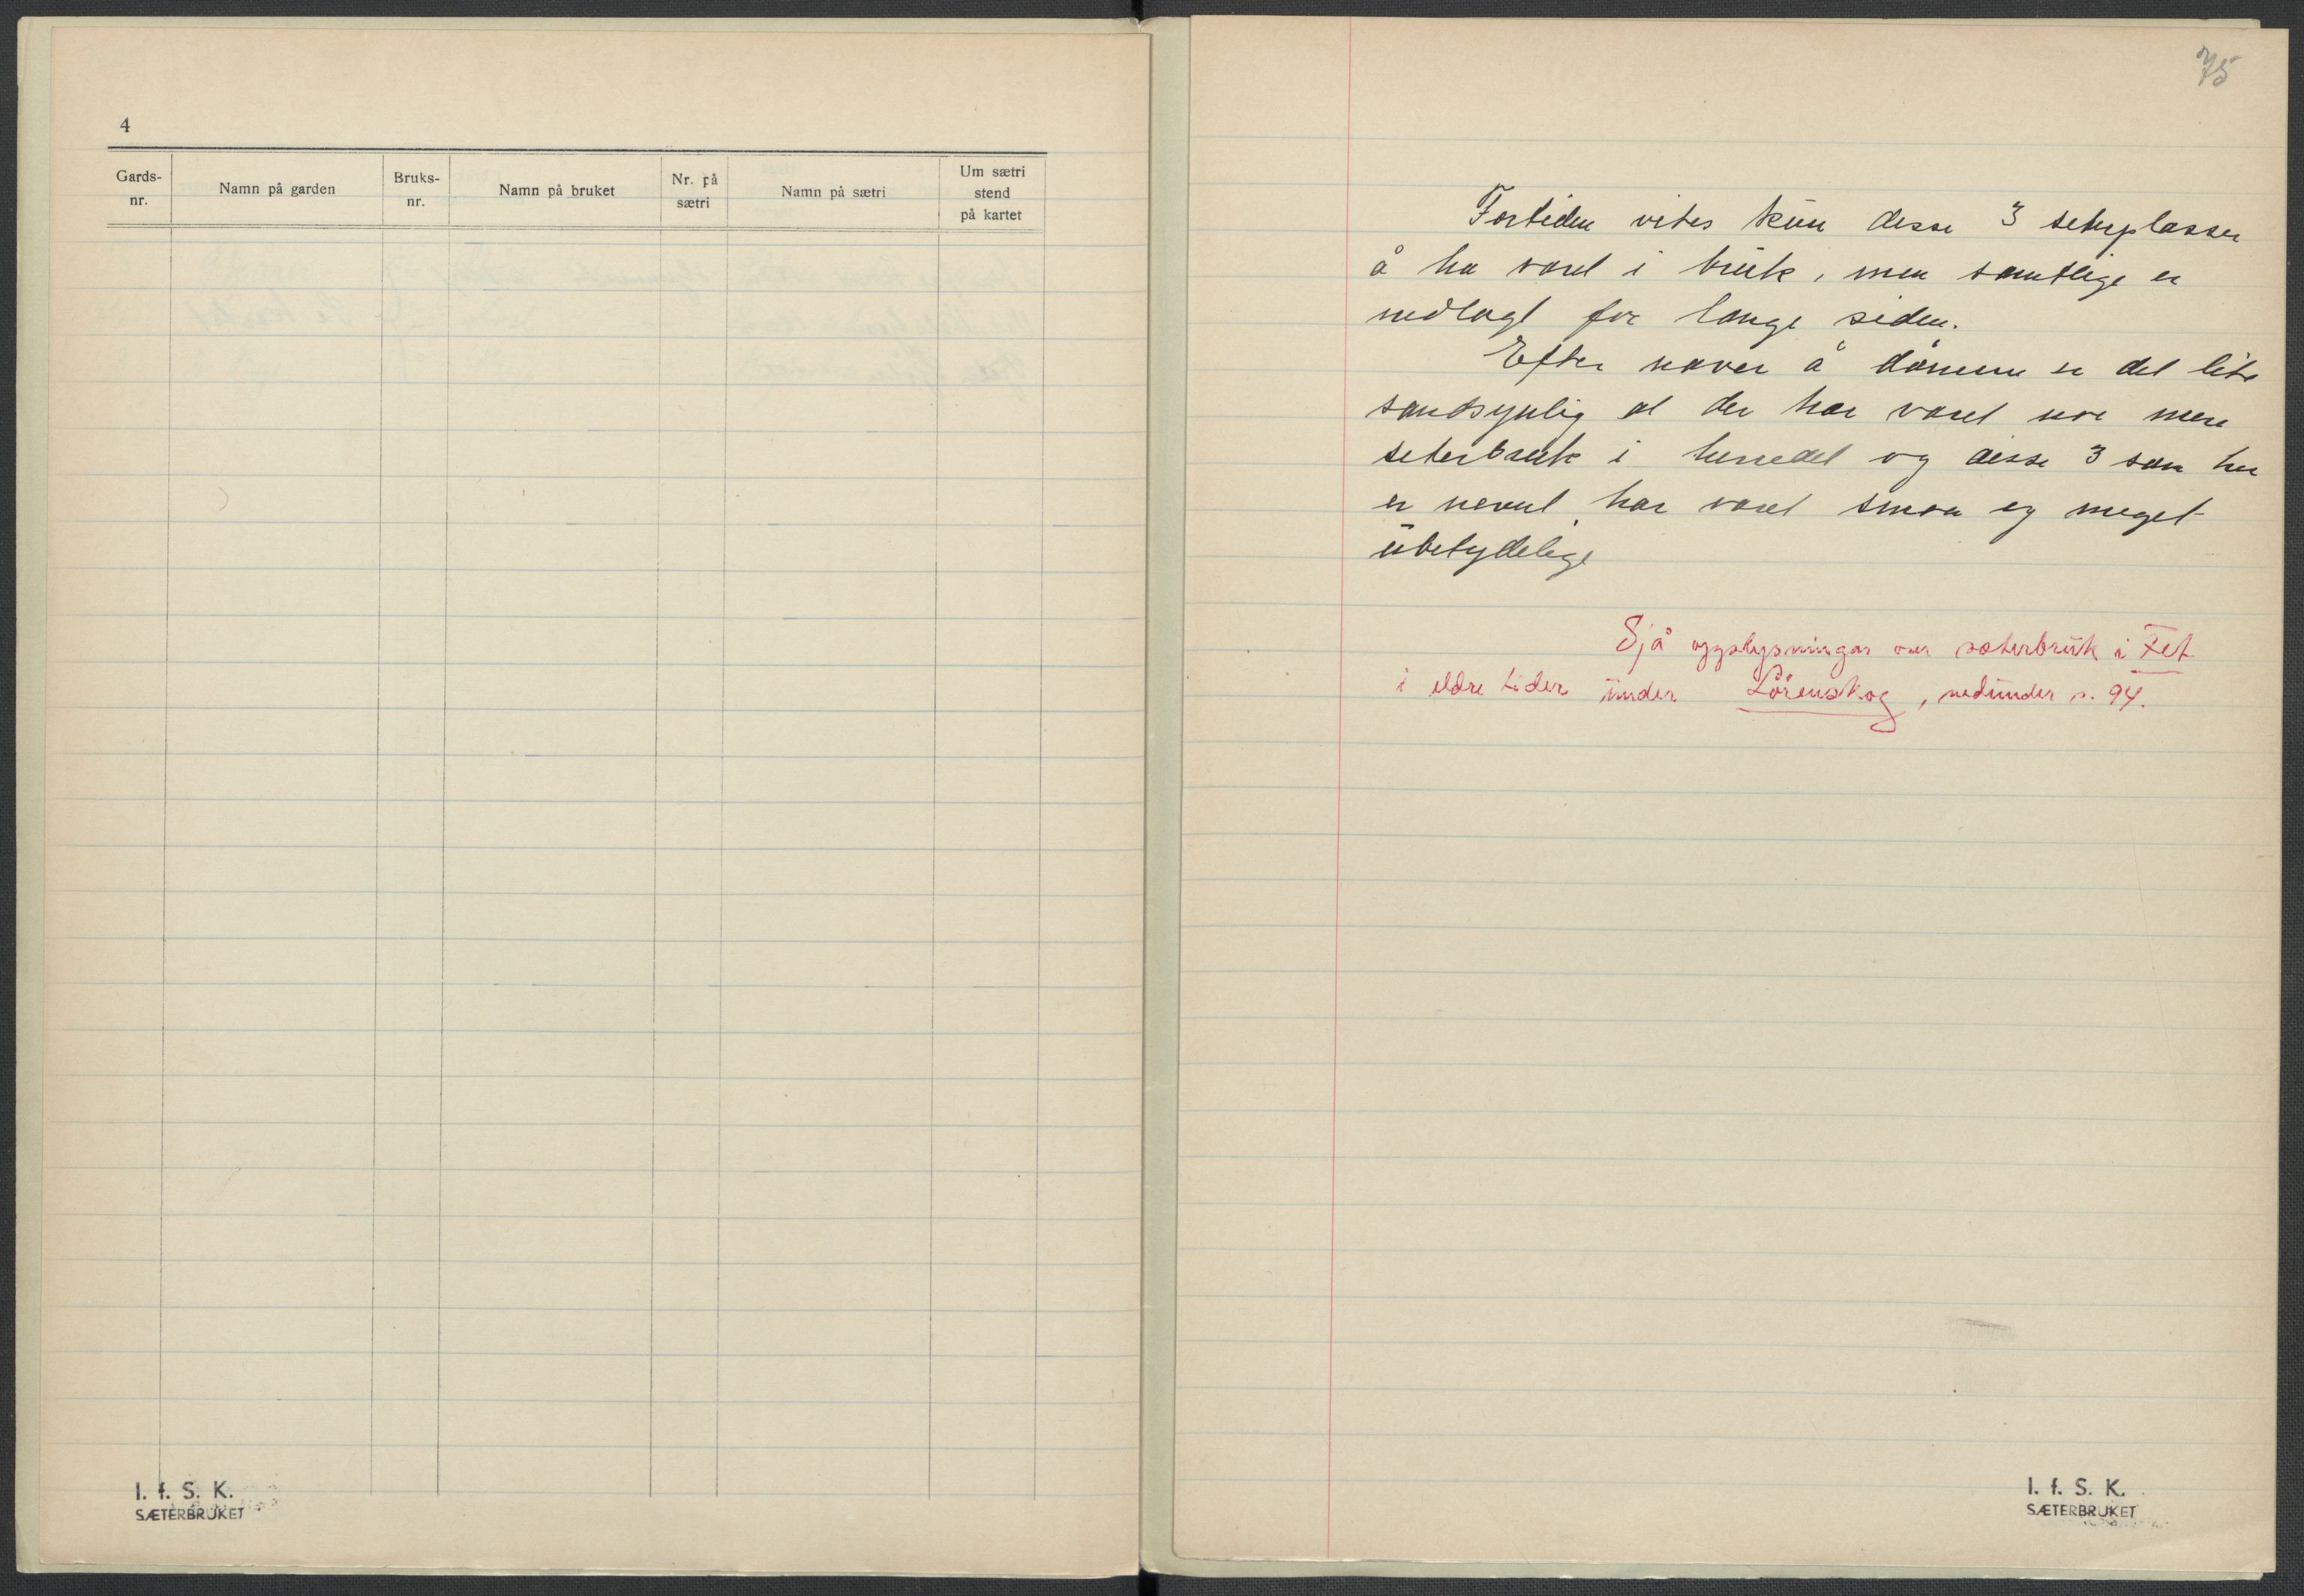 4
Gards-
nr.
Namn på garden
Bruks-
nr.
Namn på bruket
Nr. på
sætri
Namn på sætri
Um sætri
stend
på kartet
I. f. S. K.
SÆTERBRUKET
75
Fortiden vites kun disse 3 seterplasser
å ha varet i bruk, men samtlige er
nedlagt for lenge siden.
Efter navn å dømme er det lite
sandsynlig at der har varet noe mere
seterbruk i herredet og disse 3 som her
er nevnt, har varet smaa og meget
ubetydelige
Sjå upplysningar om sæterbruk i Fet
i eldre tider under Lørenskog, nedunder s. 94.
I. f. S. K.
SÆTERBRUKET